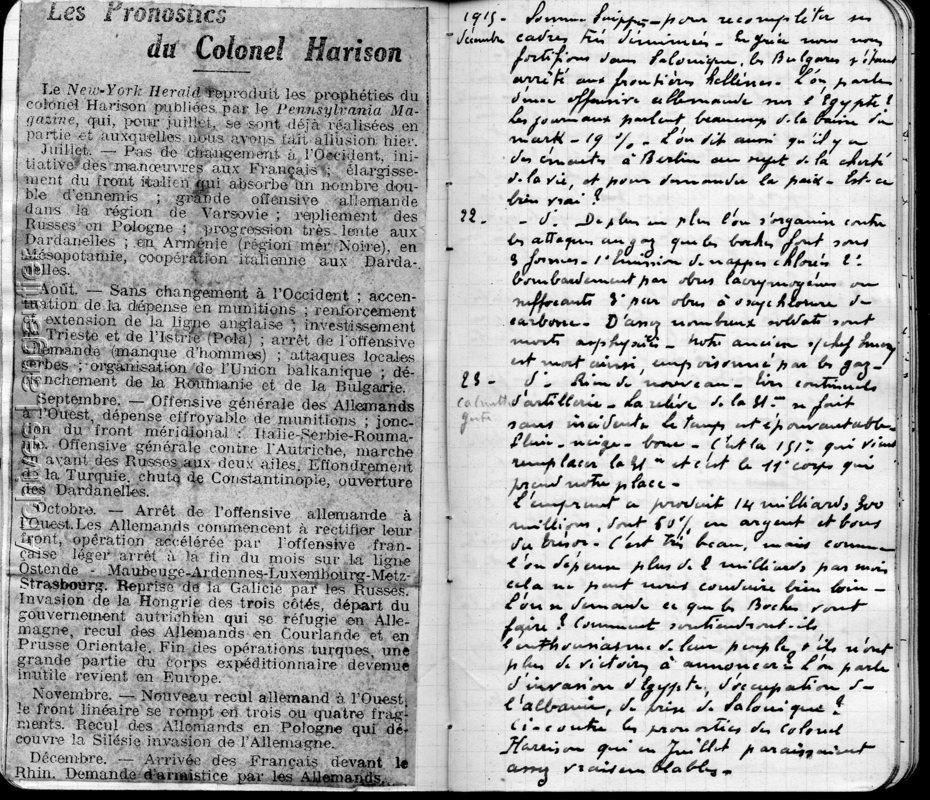 Les Pronostics
du Colonel Harison
Le New-York Herald reproduit les prophéties du
colonel Harison publiées par le Pennsylvania Ma-
gazine, qui, pour juillet, se sont déjà réalisées en
partie et auxquelles nous avons fait allusion hier.
Juillet. — Pas de changement à l'Occident, ini-
tiative des manœuvres aux Français ; élargisse-
ment du front italien qui absorbe un nombre dou-
ble d'ennemis ; grande offensive allemande
dans la région de Varsovie ; repliement des
Russes en Pologne ; progression très lente aux
Dardanelles ; en Arménie (région mer Noire), en
Mésopotamie, coopération italienne aux Darda-
nelles.
Août. — Sans changement à l'Occident ; accen-
tuation de la dépense en munitions ; renforcement
extension de la ligne anglaise ; investissement
Trieste et de l'Istrie (Pola) ; arrêt de l'offensive
allemande (manque d'hommes) ; attaques locales
serbes ; organisation de l'Union balkanique ; dé-
clenchement de la Roumanie et de la Bulgarie.
Septembre. — Offensive générale des Allemands
à l'Ouest, dépense effroyable de munitions ; jonc-
tion du front méridional : Italie-Serbie-Rouma-
nie. Offensive générale contre l'Autriche, marche
en avant des Russes aux deux ailes. Effondrement
de la Turquie, chute de Constantinople, ouverture
des Dardanelles.
Octobre. — Arrêt de l'offensive allemande à
l'Ouest. Les Allemands commencent à rectifier leur
front, opération accélérée par l'offensive fran-
çaise léger arrêt à la fin du mois sur la ligne
Ostende - Maubeuge-Ardennes-Luxembourg-Metz-
Strasbourg. Reprise de la Galicie par les Russes.
Invasion de la Hongrie des trois côtés, départ du
gouvernement autrichien qui se réfugie en Alle-
magne, recul des Allemands en Courlande et en
Prusse Orientale. Fin des opérations turques, une
grande partie du corps expéditionnaire devenue
inutile revient en Europe.
Novembre. — Nouveau recul allemand à l'Ouest,
le front linéaire se rompt en trois ou quatre frag-
ments. Recul des Allemands en Pologne qui dé-
couvre la Silésie invasion de l'Allemagne.
Décembre. — Arrivée des Français devant le
Rhin. Demande d'armistice par les Allemands.
1915 - Somme Suippe - pour recompléter ses
décembre cadres très diminués - En grèce nous nous
fortifions dans Salonique, les Bulgares s'étant
arrêté aux frontières hellènes - L'on parle
d'une offensive allemande sur l'Egypte ?
Les journaux parlent beaucoup de la baisse du
mark - 19 % - L'on dit aussi qu'il y a
des émeutes à Berlin au sujet de la cherté
de la vie, et pour demander la paix - Est-ce
bien vrai ?
22 - d° - De plus en plus l'on s'organise contre
les attaques au gaz que les boches font sous
3 formes - 1° émission de nappes chlorées 2°
bombardement par obus lacrymogènes ou
suffocants 3° par obus à oxychlorure de
carbone - D'assez nombreux soldats sont
morts asphyxiés - Notre ancien s/chef
est mort ainsi, empoisonné par les gaz -
23 - d° - Rien de nouveau - tirs continuels
d'artillerie - La relève de la 21me se fait
sans incidents le temps est épouvantable
Pluie - neige - boue - C'est la 151me qui vient
remplacer la 21me et c'est le 11e corps qui
prend notre place -
L'emprunt a produit 14 milliards 300
millions, dont 50% en argent et bons
du trésor - C'est très beau, mais comme
l'on dépense plus de 2 milliards par mois
cela ne peut nous conduire bien loin -
L'on se demande ce que les Boches vont
faire ? Comment soutiendront-ils
l'enthousiasme de leur peuple s'ils n'ont
plus de victoires à annoncer ? L'on parle
d'invasion d'Egypte, d'occupation de
l'albanie, de prise de Salonique ?
Ci-contre les pronostics du Colonel
Harrison qui en Juillet paraissaient
assez vraisemblables -